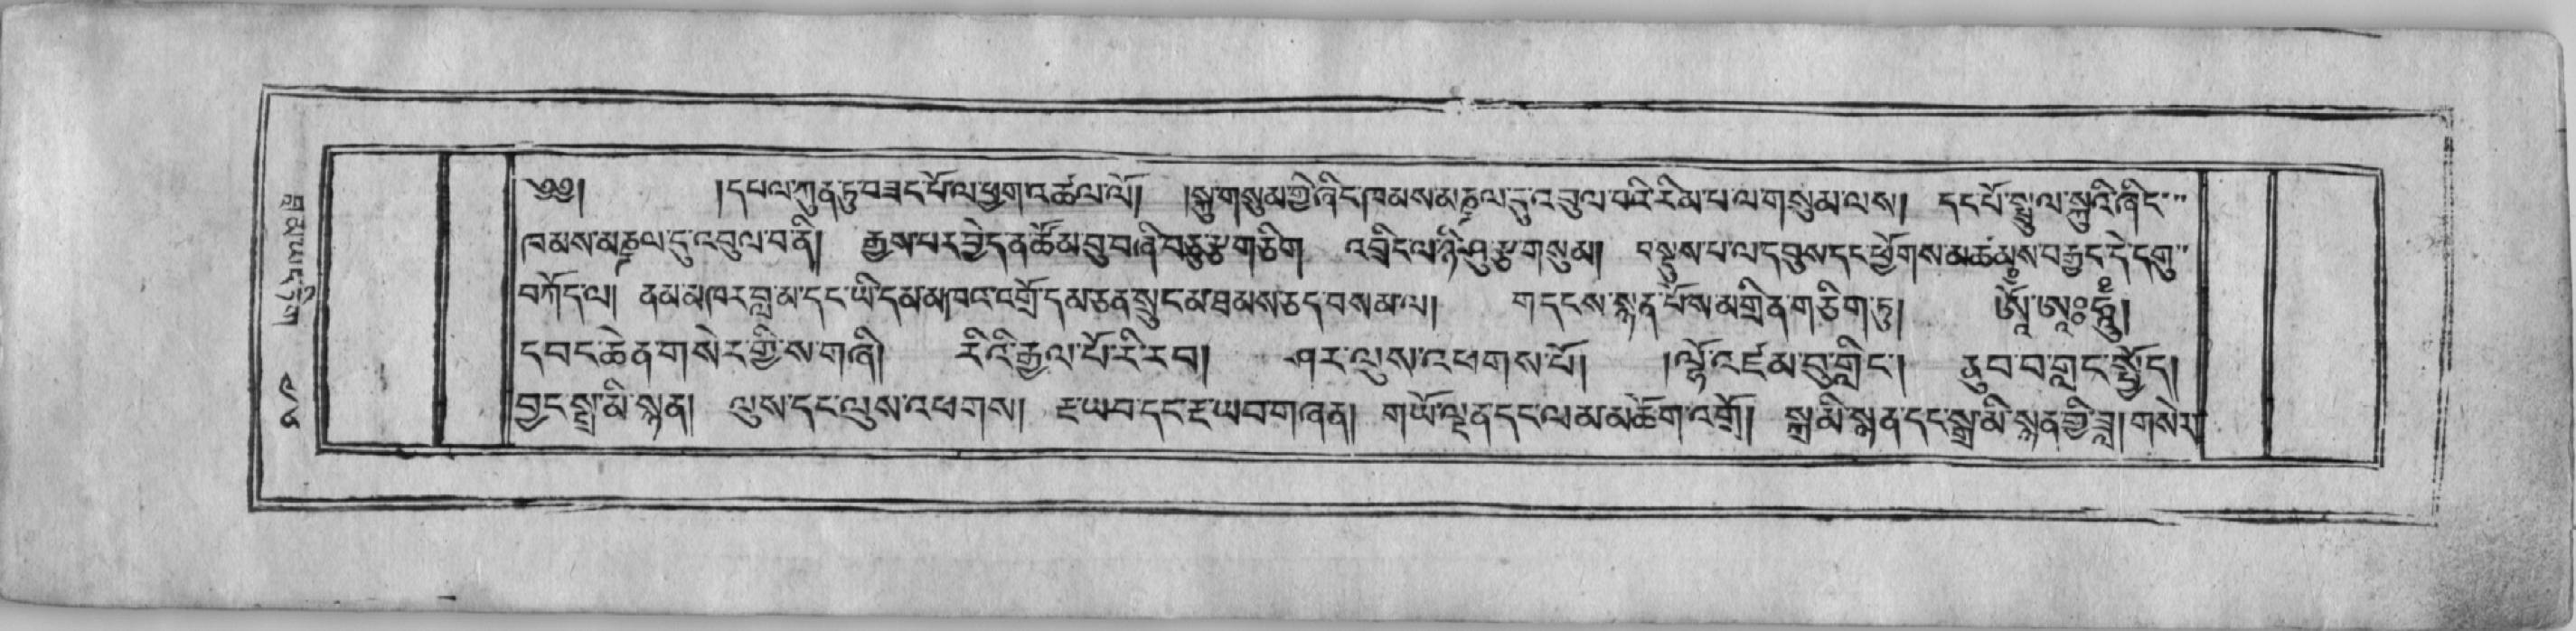 ༄༅། །དཔལ་ཀུན་ཏུ་བཟང་པོ་ལ་ཕྱག་འཚལ་ལོ། །སྐུ་གསུམ་གྱི་ཞིང་ཁམས་མཎྜལ་དུ་འབུལ་བའི་རིམ་པ་ལ་གསུམ་ལས། དང་པོ་སྤྲུལ་སྐུའི་ཞིང་
ཁམས་མཎྜལ་དུ་འབུལ་བ་ནི། རྒྱས་པར་བྱེད་ན་ཚོམ་བུ་བཞི་བཅུ་རྩ་གཅིག འབྲིང་ལ་ཉི་ཤུ་རྩ་གསུམ། བསྡུས་པ་ལ་དབུས་དང་ཕྱོགས་མཚམས་བརྒྱད་དེ་དགུ་
བཀོད་ལ། ནམ་མཁར་བླ་མ་དང་ཡི་དམ་མཁའ་འགྲོ་དམ་ཅན་སྲུང་མ་ཐམས་ཅད་བསམ་ལ། གདངས་སྙན་པོས་མགྲིན་གཅིག་ཏུ། ཨོཾ་ཨཱཿཧཱུྃ།
དབང་ཆེན་གསེར་གྱི་ས་གཞི། རིའི་རྒྱལ་པོ་རི་རབ། ཤར་ལུས་འཕགས་པོ། །ལྷོ་འཛམ་བུ་གླིང་། ནུབ་བ་གླང་སྤྱོད།
བྱང་སྒྲ་མི་སྙན། ལུས་དང་ལུས་འཕགས། རྔ་ཡབ་དང་རྔ་ཡབ་གཞན། གཡོ་ལྡན་དང་ལམ་མཆོག་འགྲོ། སྒྲ་མི་སྙན་དང་སྒྲ་མི་སྙན་གྱི་ཟླ། གསེར